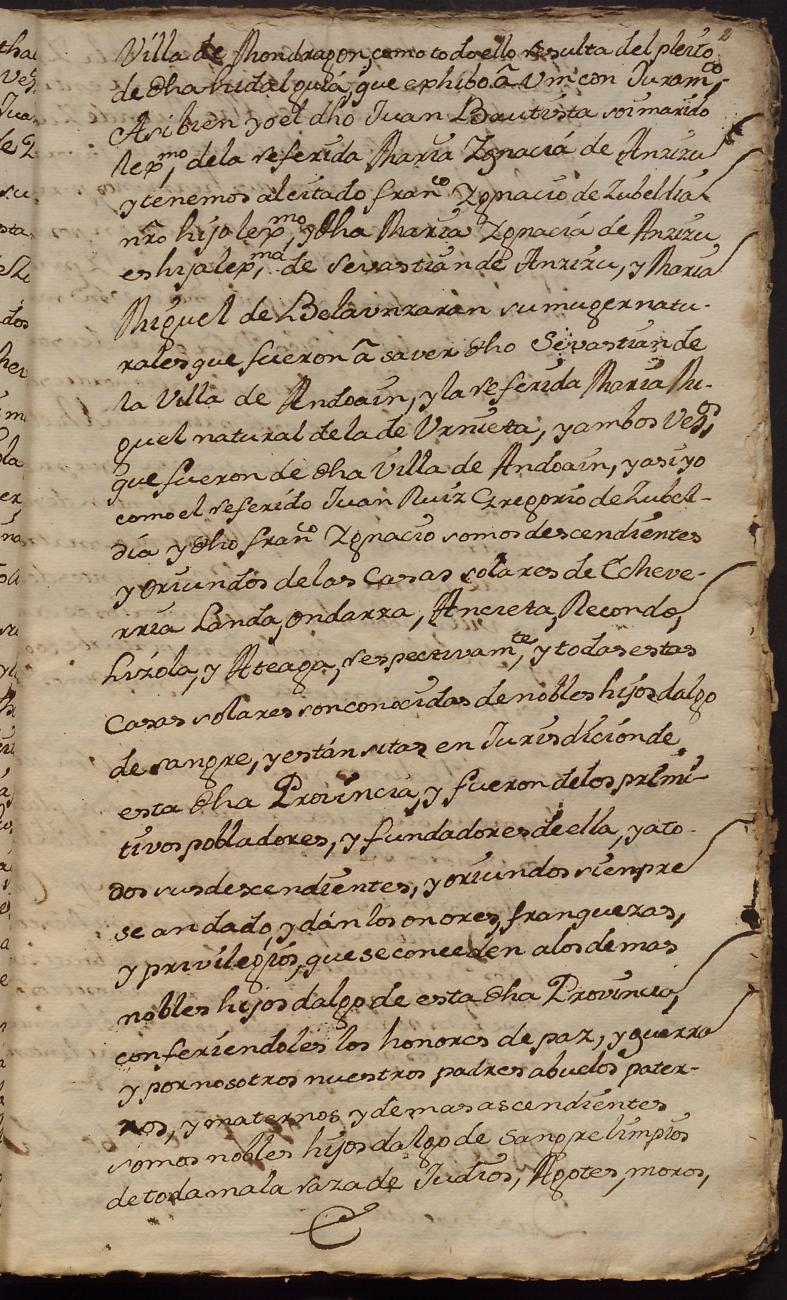 2
Villa de Mondragon, como todo ello resulta del pleito
de dha hidalguia, que exhibo â Vm con Juramto,
Asi bien yo el dho Juan Bautista soi marido
lexmo, de la referida Maria Ygnaciá de Anzizu
y tenemos al citado Franco Ygnacio de Lubeldia
nro hijo lexmo, y dha Maria Ygnacia de Anzizu
es hija lexma, de Sevastian de Anzizu, y Maria
Miguel de Belaunzaran su muger natu-
rales que fueron â saver dho Sevastian de
la Villa de Andoain, y la referida Maria Mi-
guel natural de la de Urnieta, y ambos Vezos,
que fueron de dha Villa de Andoain, y asi yo
como el referido Juan Ruiz Gregorio de Lubel-
dia y dho Franco Ygnacio somos descendientes
y oriundos de las Casas solares de Echeve-
rria Landa, ondarza, Ancieta, Recondo,
Lizola, y Ateaga, respectivamte, y todas estas
Casas solares son conocidas de nobles hijos dalgo
de sangre, y están sitas en Jurisdicion de
esta dha Provincia, y fueron de los primi-
tivos pobladores, y fundadores de ella, y a to-
dos sus descendientes, y oriundos sienpre
se an dado, y dán los onores, franquezas,
y privilegios, que se conceden a los demas
nobles hijos dalgo de esta dha Provincia,
conferiendoles los honores de paz, y guerra
y por nosotros nuestros padres abuelos pater-
nos, y maternos, y demas ascendientes
somos nobles hijos dalgo de sangre limpios
de toda mala raza de Judios, Agotes, moros,